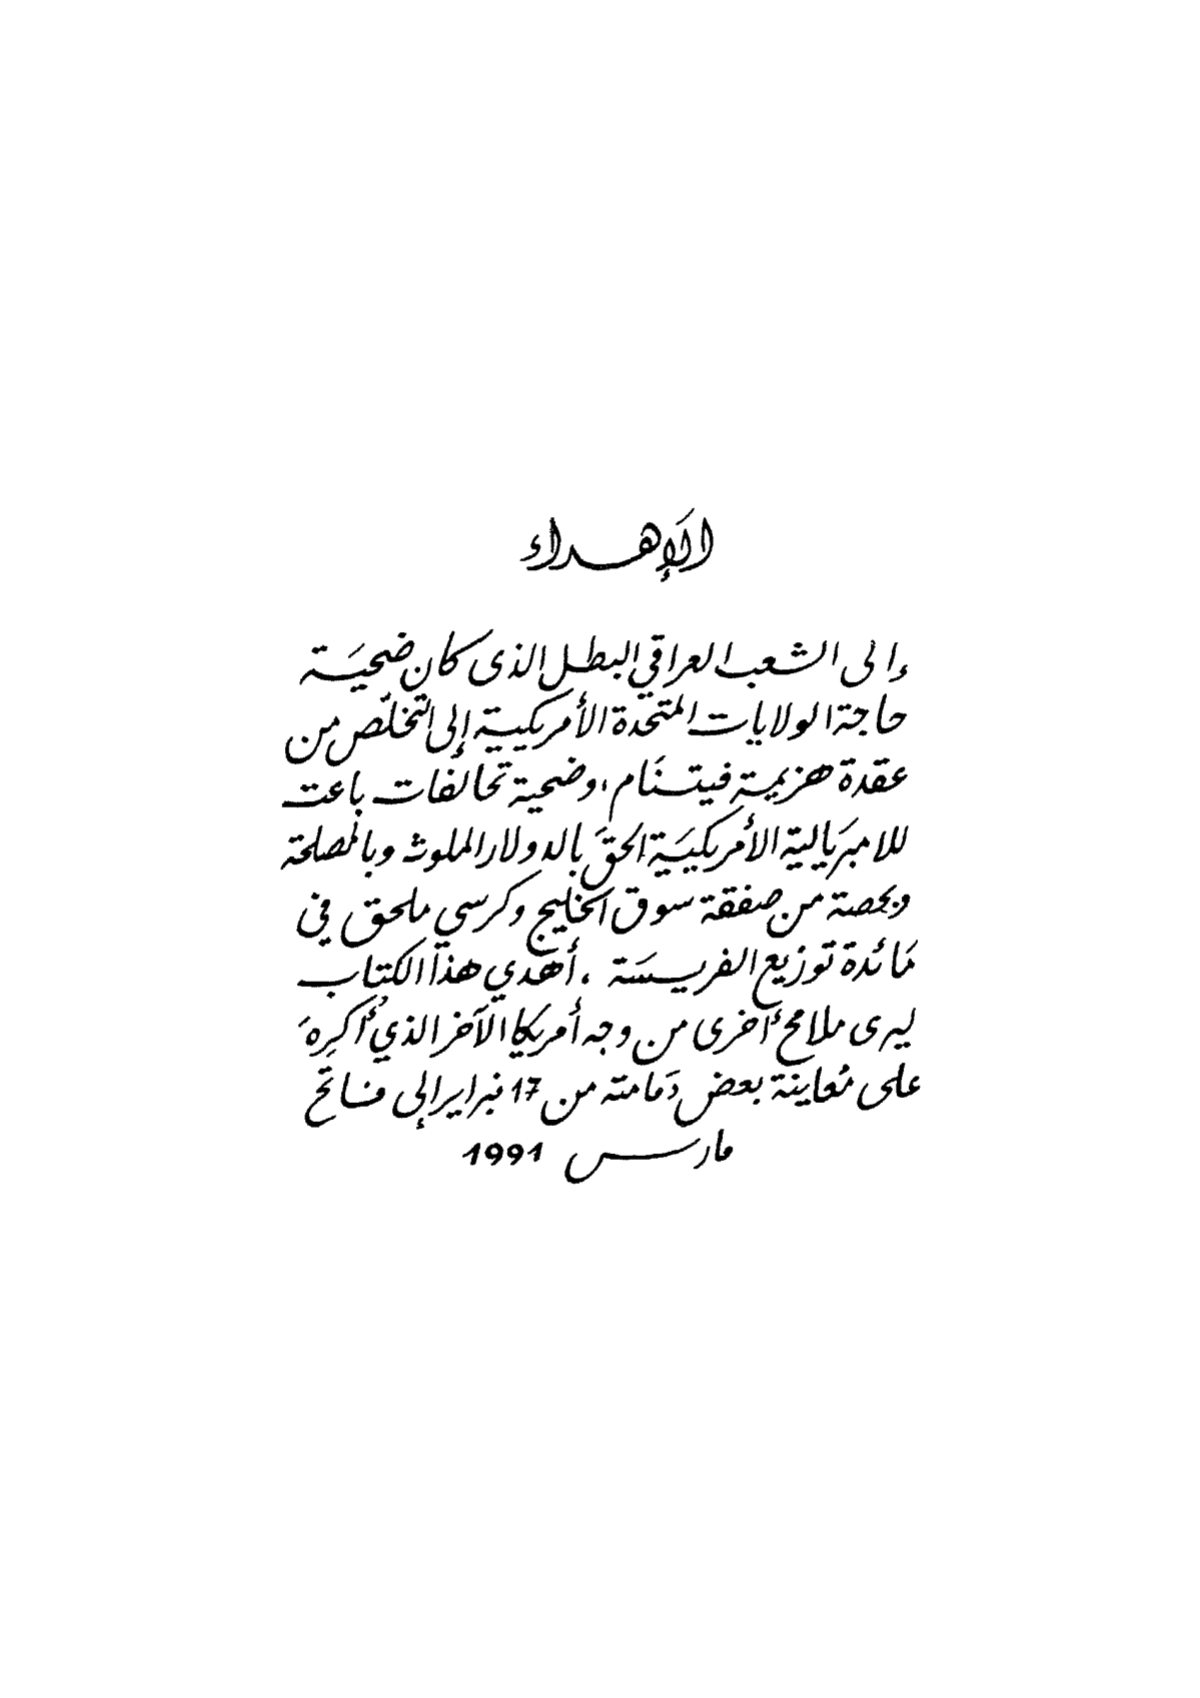 الإهداء
إلى الشعب العراقي البطل الذى كان ضحيَة
حاجة الولايات المتحدة الأمريكيية إلى التخلّص من
عقدة هزيمة فيتنَام، وضحية تحالفات باعت
للامبرَيالية الأمريكيَية الحقَ بالدولار الملوث وبالمصلحة
وبحصة من صفقة سوق الخليج وكرسي ملحق في
مَائدة توزيع الفريسَة ، أهدي هذا الكتاب
ليرى ملامح أخرى من وجه أمريكا الآخر الذي أُكرِهَ
على مُعاينة بعض دَمامته من 17 فبراير إلى فاتح
مارس 1991